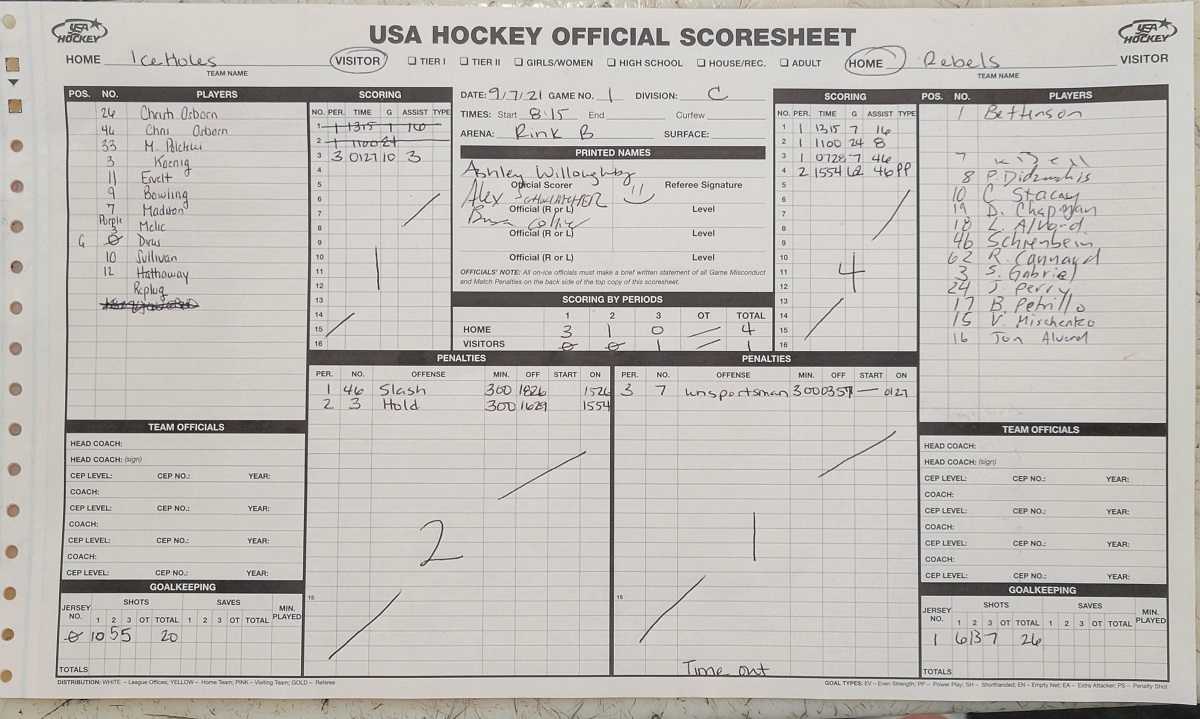 USA HOCKEY
USA HOCKEY OFFICIAL SCORESHEET
USA HOCKEY
HOME IceHoles VISITOR
TEAM NAME
TIER I TIER II GIRLS/WOMEN HIGH SCHOOL HOUSE/REC. ADULT
HOME Rebels VISITOR
TEAM NAME
POS. NO. PLAYERS
26 Christi Osborn
46 Chris Osborn
33 M.
3 Koenig
11
9 Bowling
7 Madison
Purple 3 Melic
G 0
10 Sullivan
12 Hathaway
Replug
SCORING
NO. PER. TIME G ASSIST TYPE
1 1 1315 7 16
2 1 1100 24
3 3 0127 10 3
4
5
6
7
8
9
10
11
12
13
14
15
16
1
DATE: 9/7/21 GAME NO. 1 DIVISION: C
TIMES: Start 8:15 End Curfew
ARENA: Rink B SURFACE:
PRINTED NAMES
Ashley Willoughby
Official Scorer Referee Signature
Alex
Official (R or L) Level
Official (R or L) Level
Official (R or L) Level
OFFICIALS' NOTE: All on-ice officials must make a brief written statement of all Game Misconduct
and Match Penalties on the back side of the top copy of this scoresheet.
SCORING BY PERIODS
1 2 3 OT TOTAL
HOME 3 1 0 — 4
VISITORS 0 0 1 — 1
SCORING
NO. PER. TIME G ASSIST TYPE
1 1 1315 7 16
2 1 1100 24 8
3 1 0728 7 46
4 2 1554 62 46 PP
5
6
7
8
9
10
11
12
13
14
15
16
4
POS. NO. PLAYERS
1 Bettenson
7
8 P.
10 C Stacay
19 D. Chapman
18 L. Alvord
46 Schrenbein
62 R. Cannard
3 S. Gabriel
24 J. Perry
17 B. Petrillo
15 V. Mischenko
16 Jon Alvord
PENALTIES
PER. NO. OFFENSE MIN. OFF START ON
1 46 Slash 300 1826 1526
2 3 Hold 300 1629 1554
15
2
PENALTIES
PER. NO. OFFENSE MIN. OFF START ON
3 7 unsportsman 300 0357 — 0127
15
1
Time out
TEAM OFFICIALS
HEAD COACH:
HEAD COACH: (sign)
CEP LEVEL: CEP NO.: YEAR:
COACH:
CEP LEVEL: CEP NO.: YEAR:
COACH:
CEP LEVEL: CEP NO.: YEAR:
COACH:
CEP LEVEL: CEP NO.: YEAR:
GOALKEEPING
JERSEY NO. SHOTS SAVES MIN. PLAYED
1 2 3 OT TOTAL 1 2 3 OT TOTAL
0 10 5 5 20
TOTALS
TEAM OFFICIALS
HEAD COACH:
HEAD COACH: (sign)
CEP LEVEL: CEP NO.: YEAR:
COACH:
CEP LEVEL: CEP NO.: YEAR:
COACH:
CEP LEVEL: CEP NO.: YEAR:
COACH:
CEP LEVEL: CEP NO.: YEAR:
GOALKEEPING
JERSEY NO. SHOTS SAVES MIN. PLAYED
1 2 3 OT TOTAL 1 2 3 OT TOTAL
1 6 13 7 26
TOTALS
DISTRIBUTION: WHITE – League Offices; YELLOW – Home Team; PINK – Visiting Team; GOLD – Referee
GOAL TYPES: EV – Even Strength; PP – Power Play; SH – Shorthanded; EN – Empty Net; EA – Extra Attacker; PS – Penalty Shot